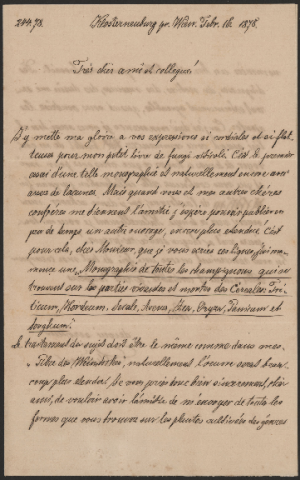 244.78. Klosterneuburg pr. Wien. Febr. 16. 1878.
Très cher ami et collegue!
J'y melle ma gloria a vos expressiones si cordiales et si flat-
teuses pour mon petit livre de fungi viticoli. C'est le premier
essai d'une telle monographie et naturellement encore avec
assez de lacunes. Mais quand vous et nos autres chères
confrères me donnent l'amitié j'espère pouvoir publier en
peu de temps un autre ouvrage, encore plus étendue. C'est
pour cela, cher Monsieur, que je vous écris ces lignes. J'ai com-
mencé une "Monographie de toutes les champignons qui se
trouvent sur les parties vivantes et mortes des Cereales: Tri-
ticum, Hordeum, Secale, Avena, Zea, Oryza, Panicum et
Sorghum."
Le traitement du sujet doit être le même comme dans mes
"Pilze des Weinstockes", naturellement l'oeuvre sera beau-
coup plus étendue. Je vous prie donc bien sincerement, cher
ami, de vouloir avoir l'amitié de m'envoyer de toute les
formes que vous trouvez sur les plantes cultivées des genres